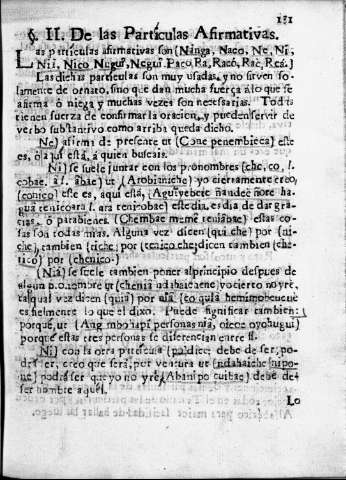 131
§. II. De las Partículas Afirmativas.
Las particulas afirmativas son (Ninga, Naco, Ne, Ni,
Nii, Nico Negui, Negui Paco, Ra, Racó, Raè, Reà.)
Las dichas particulas son muy usadas, y no sirven so-
lamente de ornato, sino que dan mucha fuerça á lo que se
afirma ò niega y muchas vezes son necessarias. Todas
tienen fuerza de confirmar la oracion, y pueden servir de
verbo substantivo como arriba queda dicho.
Ne) afirma de presente ut (Cone penembieca) este
es, ò aqui està, á quien buscais.
Ni) se suele juntar con los pronombres (che, co,
cobae, á, abae) ut (Arobianiche) yo ciertamente creo,
(conico) este es, aqui está,
este dia, es dia de dar gra-
cias, ò parabienes. (Chembae memè reniabae) estas co-
sas son todas mias. Alguna vez dicen (qui che) por (ni-
che), tambien (riche) por (renico che) dicen tambien (che-
rico) por (chenico.)
(Nià) se suele tambien poner al principio despues de
algun nombre ut yo cierto no yrè,
tal qual vez dicen (quia) por nià
es fielmente lo que el dixo. Puede significar tambien:
porquè, ut (Ang mbohapi personas nià,
porquè estas tres personas se diferencian entre si.
Ni) con la otra particula debe de ser, po-
drà ser, creo que serà, por ventura ut (ndahaiche nipo-
ne) podrá ser que yo no yrè, (Abanipo cuibae) debe de
ser hombre aquel.
Lo